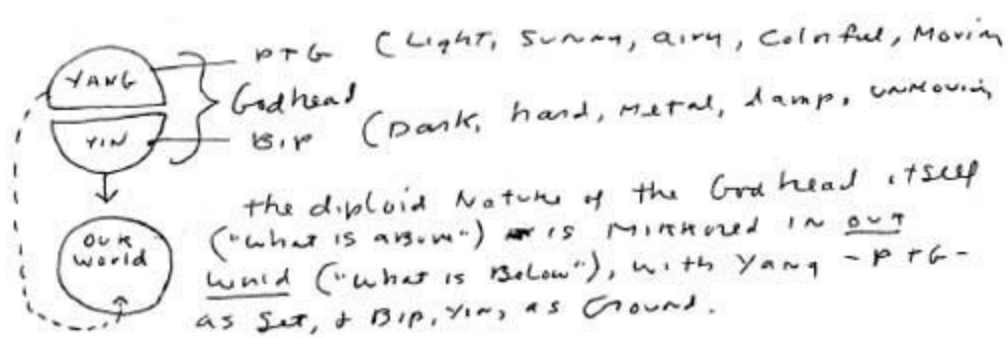 YANG
PTG (Light, sunny, airy, colorful, moving
Godhead
YIN
BIP (Dark, hard, metal, damp, unmoving
the diploid nature of the Godhead itself
("what is above") is mirrored in our
world ("what is Below"), with Yang - PTG -
as Set, & Bip, Yin, as Ground.
our
world